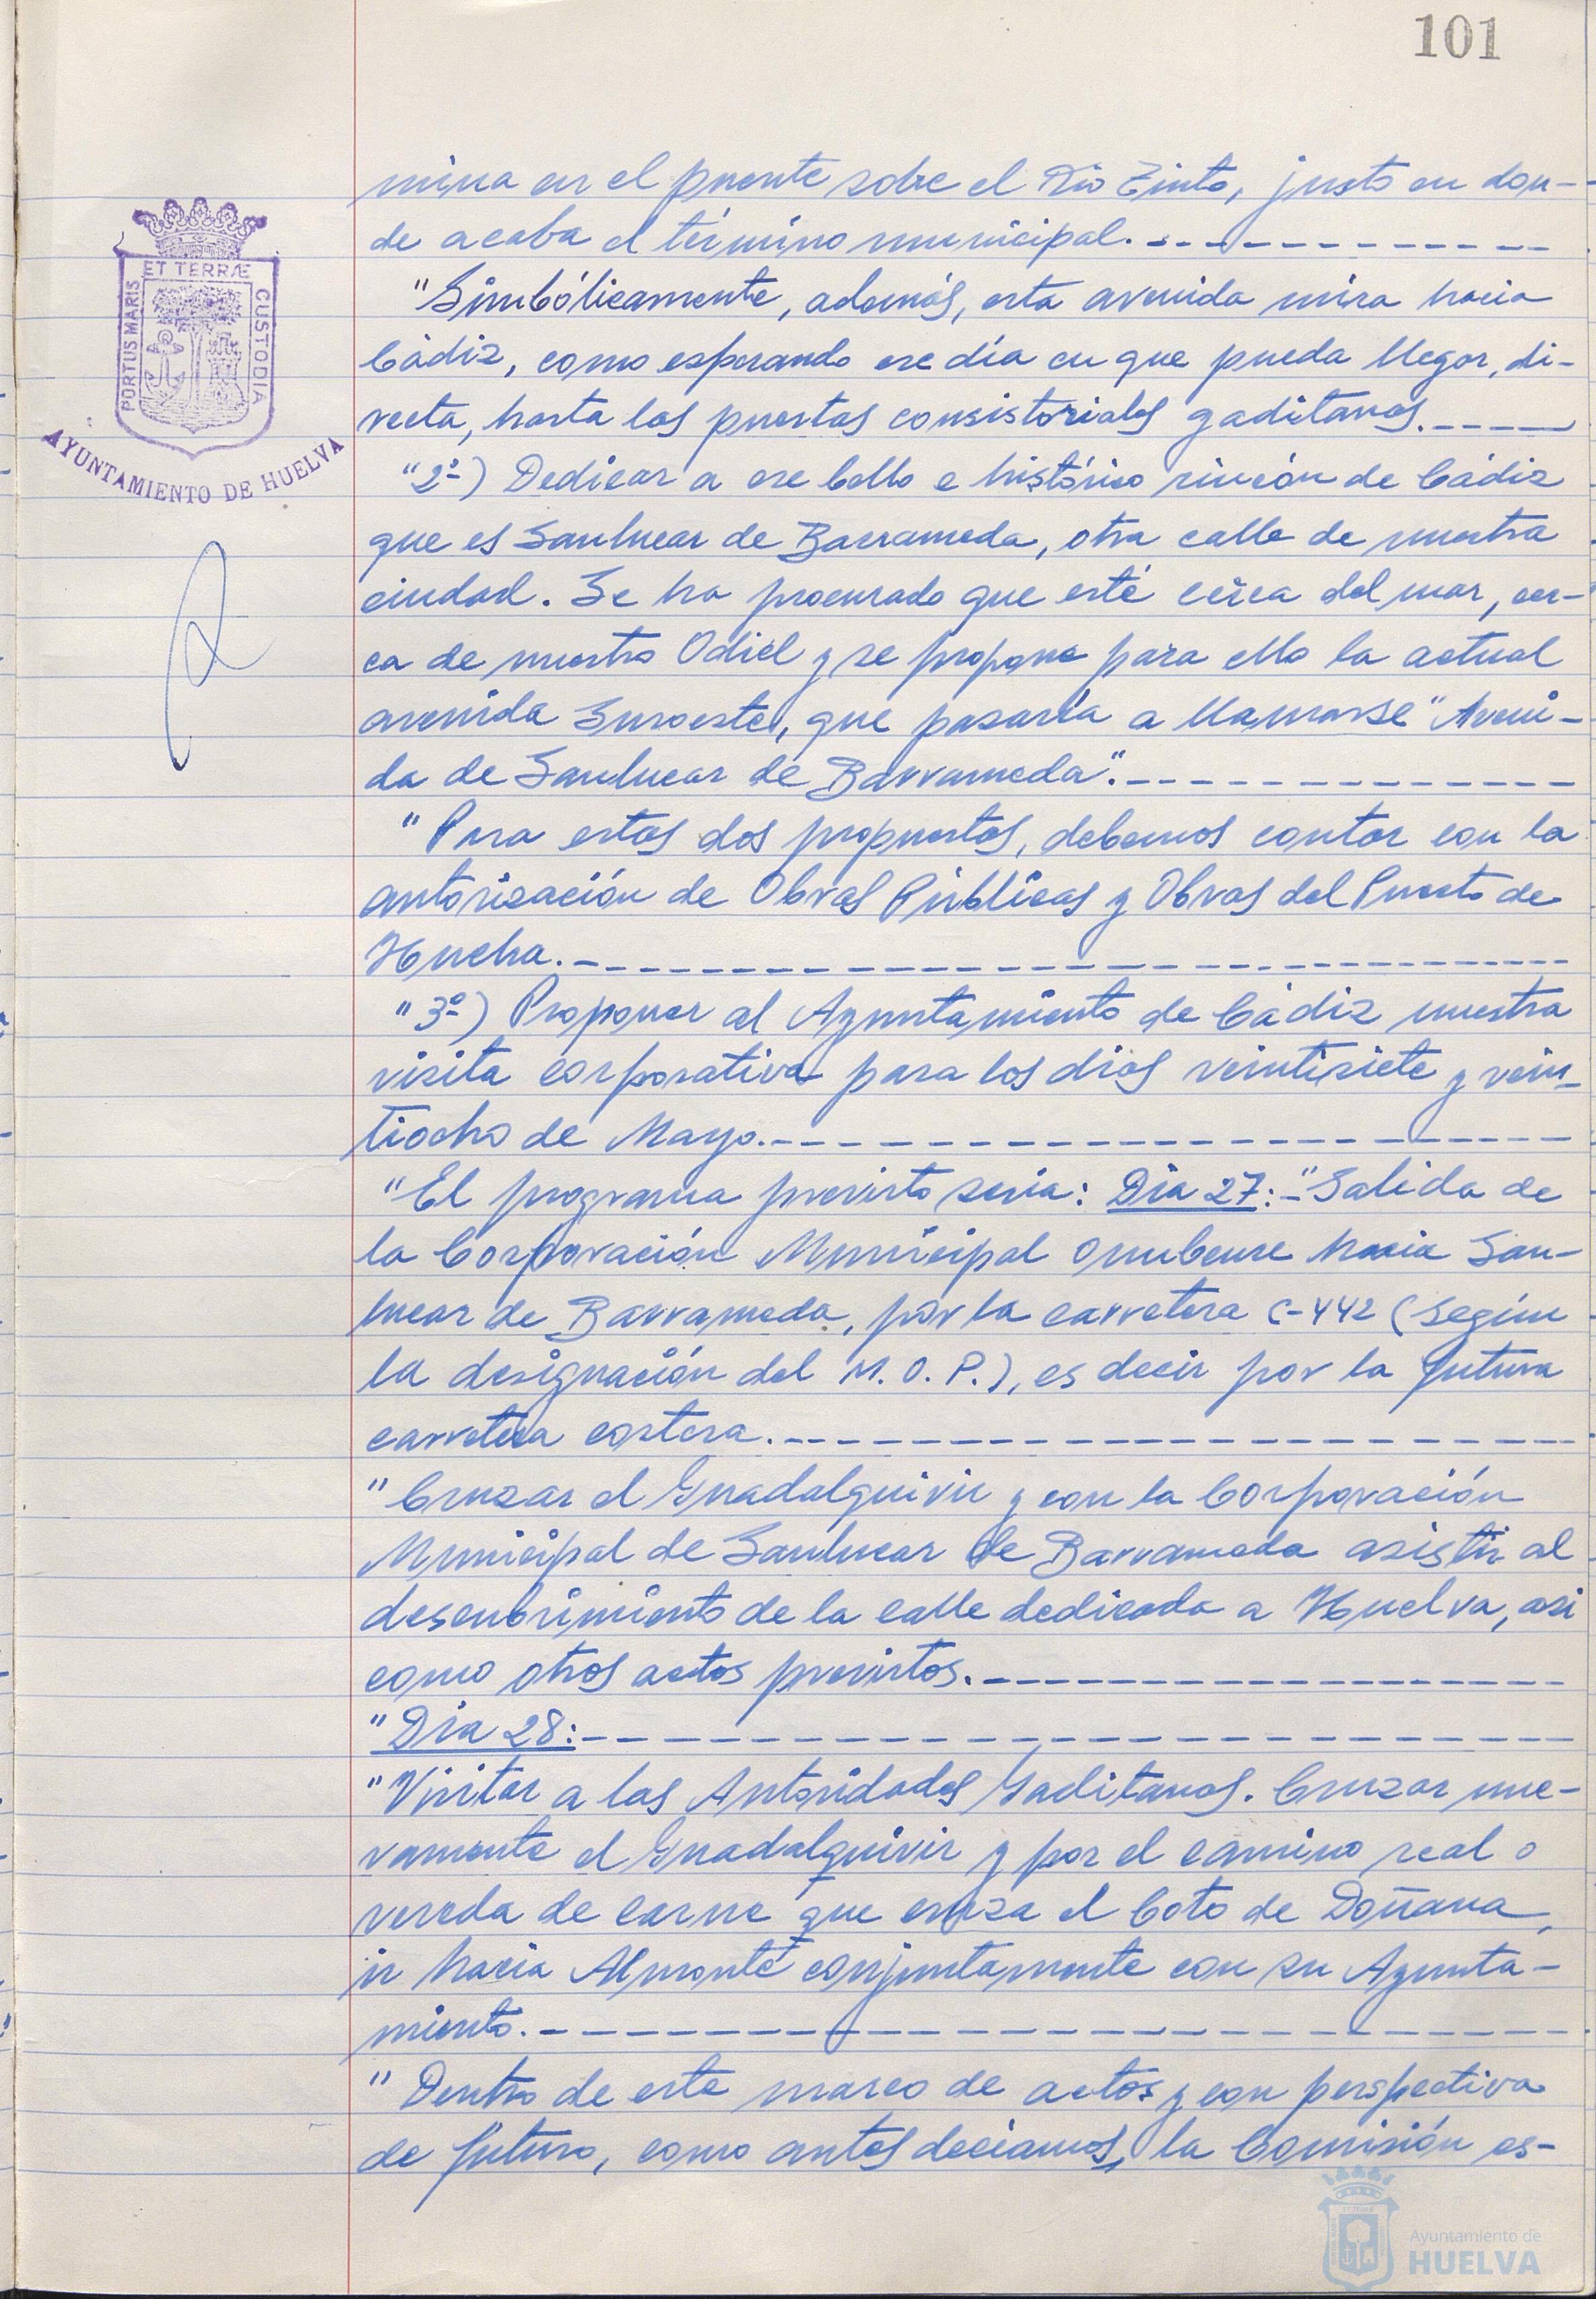 101
mina en el puente sobre el Río Tinto, justo en don-
de acaba el término municipal.
"Simbólicamente, además, esta avenida mira hacia
Cádiz, como esperando ese día en que pueda llegar, di-
recta, hasta las puertas consistoriales gaditanas.
"2º) Dedicar a ese bello e histórico rincón de Cádiz
que es Sanlucar de Barrameda, otra calle de nuestra
ciudad. Se ha procurado que esté cerca del mar, cer-
ca de nuestro Odiel y se propone para ello la actual
avenida Suroeste, que pasaría a llamarse "Aveni-
da de Sanlucar de Barrameda".
"Para estas dos propuestas, debemos contar con la
autorización de Obras Públicas y Obras del Puerto de
Huelva.
"3º) Proponer al Ayuntamiento de Cádiz nuestra
visita corporativa para los dias veintisiete y vein-
tiocho de Mayo.
"El programa previsto seria: Dia 27:-"Salida de
la Corporación Municipal Onubense hacia San-
lucar de Barrameda, por la carretera C-442 (según
la designación del M.O.P.), es decir por la futura
carretera costera.
"Cruzar el Guadalquivir y con la Corporación
Municipal de Sanlucar de Barrameda asistir al
descubrimiento de la calle dedicada a Huelva, asi
como otros actos previstos.
"Dia 28:
"Visitar a las Autoridades Gaditanas. Cruzar nue-
vamente el Guadalquivir y por el camino real o
vereda de carne que cruza el Coto de Doñana,
ir hacia Almonte conjuntamente con su Ayunta-
miento.
"Dentro de este marco de actos y con perspectiva
de futuro, como antes deciamos, la Comisión es-
PORTUS MARIS
ET TERRÆ
CUSTODIA
AYUNTAMIENTO DE HUELVA
Ayuntamiento de
HUELVA